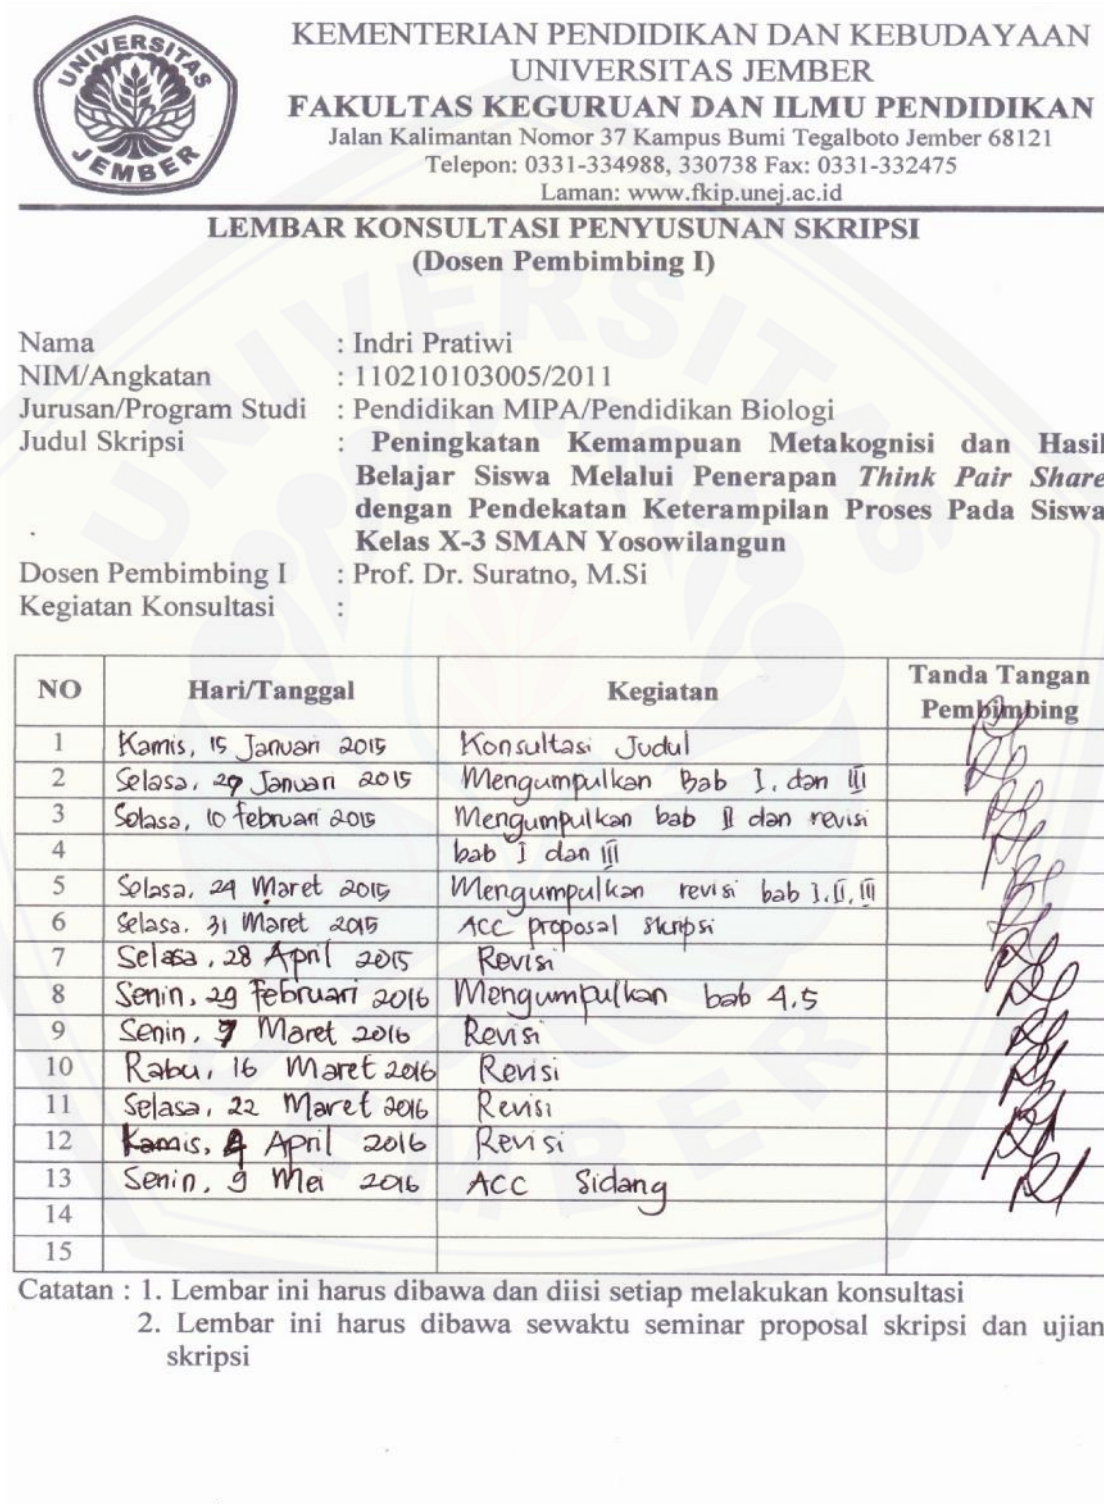 UNIVERSITAS JEMBER
KEMENTERIAN PENDIDIKAN DAN KEBUDAYAAN
UNIVERSITAS JEMBER
FAKULTAS KEGURUAN DAN ILMU PENDIDIKAN
Jalan Kalimantan Nomor 37 Kampus Bumi Tegalboto Jember 68121
Telepon: 0331-334988, 330738 Fax: 0331-332475
Laman: www.fkip.unej.ac.id
LEMBAR KONSULTASI PENYUSUNAN SKRIPSI
(Dosen Pembimbing I)
Nama : Indri Pratiwi
NIM/Angkatan : 110210103005/2011
Jurusan/Program Studi : Pendidikan MIPA/Pendidikan Biologi
Judul Skripsi : Peningkatan Kemampuan Metakognisi dan Hasil
Belajar Siswa Melalui Penerapan Think Pair Share
dengan Pendekatan Keterampilan Proses Pada Siswa
Kelas X-3 SMAN Yosowilangun
Dosen Pembimbing I : Prof. Dr. Suratno, M.Si
Kegiatan Konsultasi :
NO Hari/Tanggal Kegiatan Tanda Tangan Pembimbing
1 Kamis, 15 Januari 2015 Konsultasi Judul
2 Selasa, Januari 2015 Mengumpulkan Bab I, dan III
3 Selasa, 10 februari 2015 Mengumpulkan bab II dan revisi
4 bab I dan III
5 Selasa, 24 Maret 2015 Mengumpulkan revisi bab I, II, III
6 Selasa, 31 Maret 2015 ACC proposal skripsi
7 Selasa, 28 April 2015 Revisi
8 Senin, 29 Februari 2016 Mengumpulkan bab 4,5
9 Senin, 7 Maret 2016 Revisi
10 Rabu, 16 Maret 2016 Revisi
11 Selasa, 22 Maret 2016 Revisi
12 Kamis, April 2016 Revisi
13 Senin, 9 Mei 2016 ACC Sidang
14
15
Catatan : 1. Lembar ini harus dibawa dan diisi setiap melakukan konsultasi
2. Lembar ini harus dibawa sewaktu seminar proposal skripsi dan ujian
skripsi